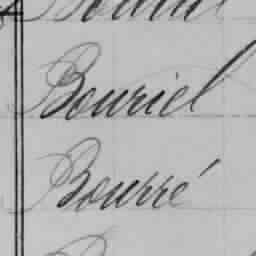 Bouriel
Bourré